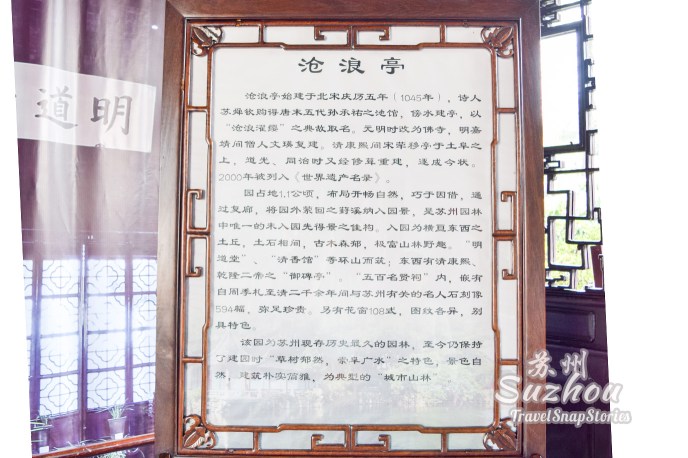 明道
沧浪亭
沧浪亭始建于北宋庆历五年（1045年），诗人
苏舜钦购得唐末五代孙承祐之池馆，傍水建亭，以
“沧浪濯缨”之典故取名。元明时改为佛寺，明嘉
靖间僧人文瑛复建。清康熙间宋荦移亭于土阜之
上，道光、同治时又经修葺重建，遂成今状。
2000年被列入《世界遗产名录》。
园占地1.1公顷，布局开畅自然，巧于因借，通
过复廊，将园外萦回之葑溪纳入园景，是苏州园林
中唯一的未入园先得景之佳构。入园为横亘东西之
土丘，土石相间，古木森郁，极富山林野趣。“明
道堂”、“清香馆”等环山而筑；东西有清康熙、
乾隆二帝之“御碑亭”。“五百名贤祠”内，嵌有
自周季札至清二千余年间与苏州有关的名人石刻像
594幅，弥足珍贵。另有花窗108式，图纹各异，别
具特色。
该园为苏州现存历史最久的园林，至今仍保持
了建园时“草树郁然，崇阜广水”之特色，景色自
然，建筑朴实简雅，为典型的“城市山林
苏州
Suzhou
TravelSnapStories